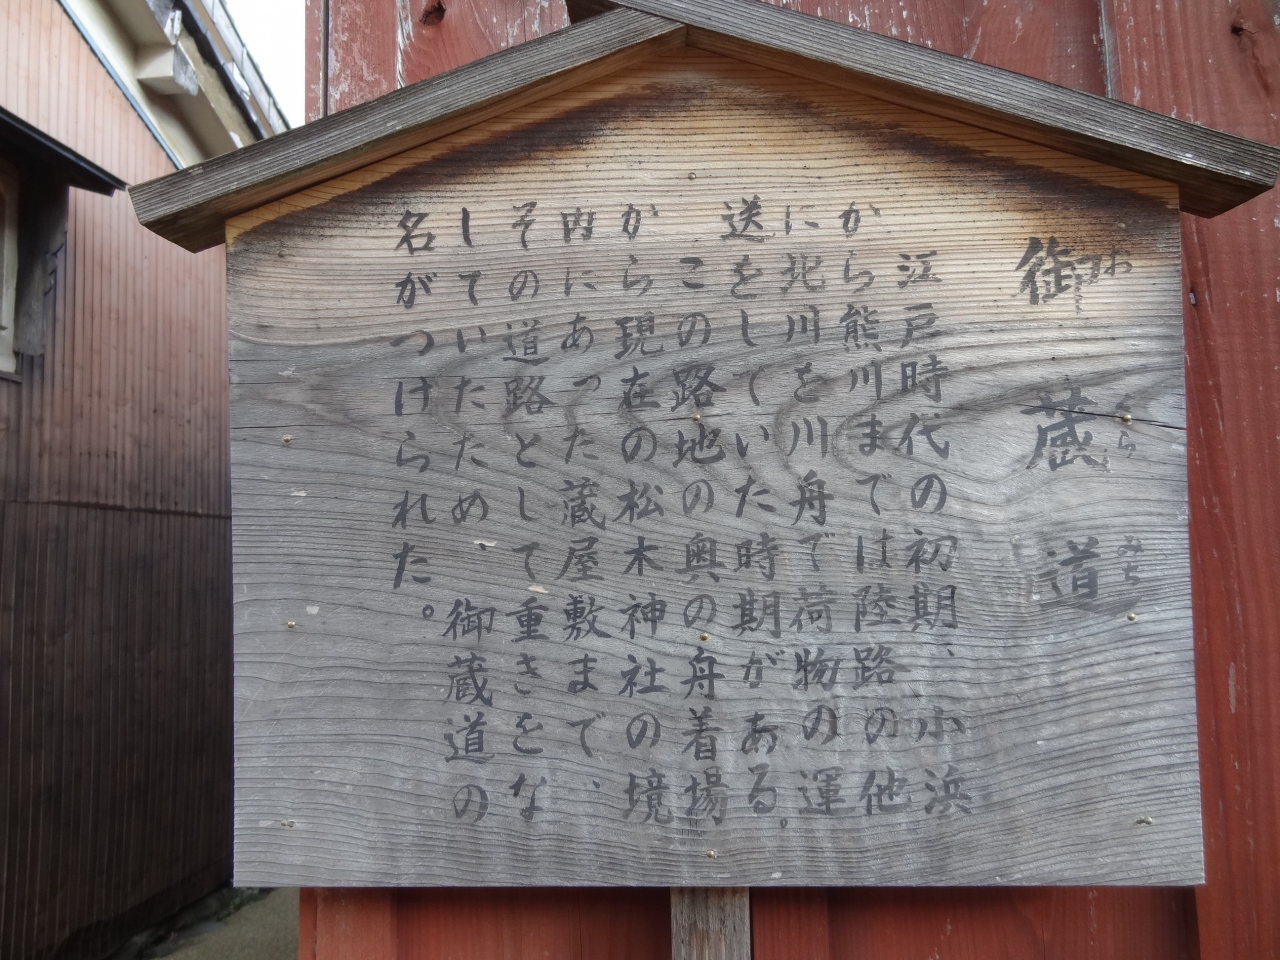 御蔵道
おくらみち
江戸時代の初期、小浜
から熊川までは陸路の他
に北川を川舟で荷物の運
送をしていた時期がある。
この路地の奥の舟着場
から現在の松木神社の境
内にあった蔵屋敷まで、
その道路として重きをな
していたため、御蔵道の
名がつけられた。